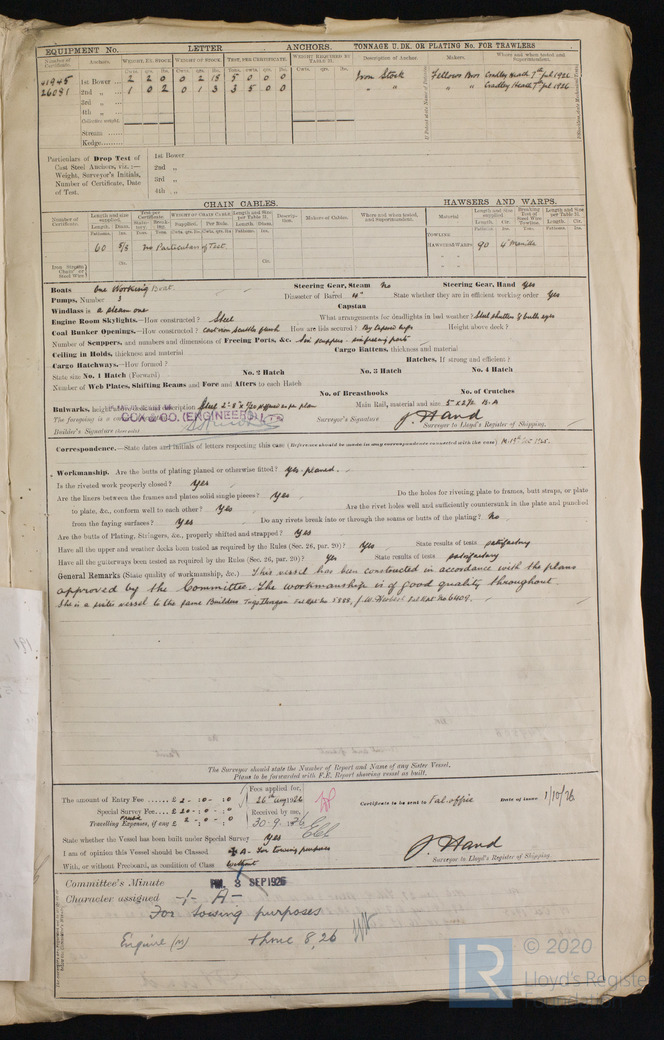 EQUIPMENT No. LETTER ANCHORS. TONNAGE U. DK. OR PLATING No. FOR TRAWLERS
Number of Certificate. Anchors. WEIGHT, EX. STOCK. WEIGHT OF STOCK. TEST, PER CERTIFICATE. WEIGHT REQUIRED BY TABLE 31. Description of Anchor. Makers. Where and when tested and Superintendent.
41945 1st Bower 2 2 0 0 2 18 5 0 0 0 Iron Stock Fellows Bros Cradley Heath 7th Jul 1926
26091 2nd „ 1 0 2 0 1 3 3 5 0 0 „ „ „ „ Cradley Heath 7th Jul 1926
3rd „
4th „
Collective weight
Stream
Kedge
Particulars of Drop Test of Cast Steel Anchors, viz.:— Weight, Surveyor's Initials, Number of Certificate, Date of Test.
1st Bower
2nd „
3rd „
4th „
CHAIN CABLES. HAWSERS AND WARPS.
Number of Certificate. Length and size supplied. Test per Certificate. WEIGHT OF CHAIN CABLE Length and Size per Table 31. Makers of Cables. Where and when tested, and Superintendent. Material Length and Size supplied. Breaking Test of Steel Wire Towline. Length and Size per Table 31.
60 5/8 no Particulars of Test.
TOWLINE
HAWSERS & WARPS 90 4" Manilla
Boats One Working Boat. Steering Gear, Steam No Steering Gear, Hand Yes
Pumps, Number 3 Diameter of Barrel 4" State whether they are in efficient working order Yes
Windlass is a steam one Capstan
Engine Room Skylights.—How constructed? Steel What arrangements for deadlights in bad weather? Steel shutters & bulls eyes
Coal Bunker Openings.—How constructed? cast iron scuttles flush How are lids secured? Height above deck?
Number of Scuppers, and numbers and dimensions of Freeing Ports, &c. Six scuppers - six freeing ports
Ceiling in Holds, thickness and material Cargo Battens, thickness and material
Cargo Hatchways.—How formed? Hatches, If strong and efficient?
State size No. 1 Hatch (Forward) No. 2 Hatch No. 3 Hatch No. 4 Hatch
Number of Web Plates, Shifting Beams and Fore and Afters to each Hatch
No. of Breasthooks No. of Crutches
Bulwarks, height above deck and description Steel Main Rail, material and size 5" x 2½ B.A
COX & CO. (ENGINEERS) LTD
The foregoing is a correct description
Builder's Signature Surveyor's Signature J. Hand
Surveyor to Lloyd's Register of Shipping.
Correspondence.—State dates and initials of letters respecting this case (Reference should be made to any correspondence connected with the case)
Workmanship. Are the butts of plating planed or otherwise fitted? Yes planed.
Is the riveted work properly closed? Yes
Are the liners between the frames and plates solid single pieces? Yes Do the holes for riveting plate to frames, butt straps, or plate
to plate, &c., conform well to each other? Yes Are the rivet holes well and sufficiently countersunk in the plate and punched
from the faying surfaces? Yes Do any rivets break into or through the seams or butts of the plating? No
Are the butts of Plating, Stringers, &c., properly shifted and strapped? Yes
Have all the upper and weather decks been tested as required by the Rules (Sec. 26, par. 20)? Yes State results of tests satisfactory
Have all the gutterways been tested as required by the Rules (Sec. 26, par. 20)? Yes State results of tests satisfactory
General Remarks (State quality of workmanship, &c.) This vessel has been constructed in accordance with the plans
approved by the Committee. The workmanship is of good quality throughout.
She is a sister vessel to the same Builders
The Surveyor should state the Number of Report and Name of any Sister Vessel,
Plans to be forwarded with F.E. Report showing vessel as built.
The amount of Entry Fee £ 2 : 0 : 0 Fees applied for, 26th Aug 1926 Certificate to be sent to Fal. office Date of issue 1/10/26
Special Survey Fee £ 20 : 0 : 0
Travelling Expenses, if any £ 2 : 0 : 0 Received by me, 30.9.26
State whether the Vessel has been built under Special Survey Yes
I am of opinion this Vessel should be Classed ✠ A - For towing purposes
With, or without Freeboard, as condition of Class without
J. Hand
Surveyor to Lloyd's Register of Shipping.
Committee's Minute FRI. 3 SEP 1926
Character assigned + A -
For towing purposes
Engine (M) + LMC 8,26
LR © 2020
Lloyd's Register
Foundation